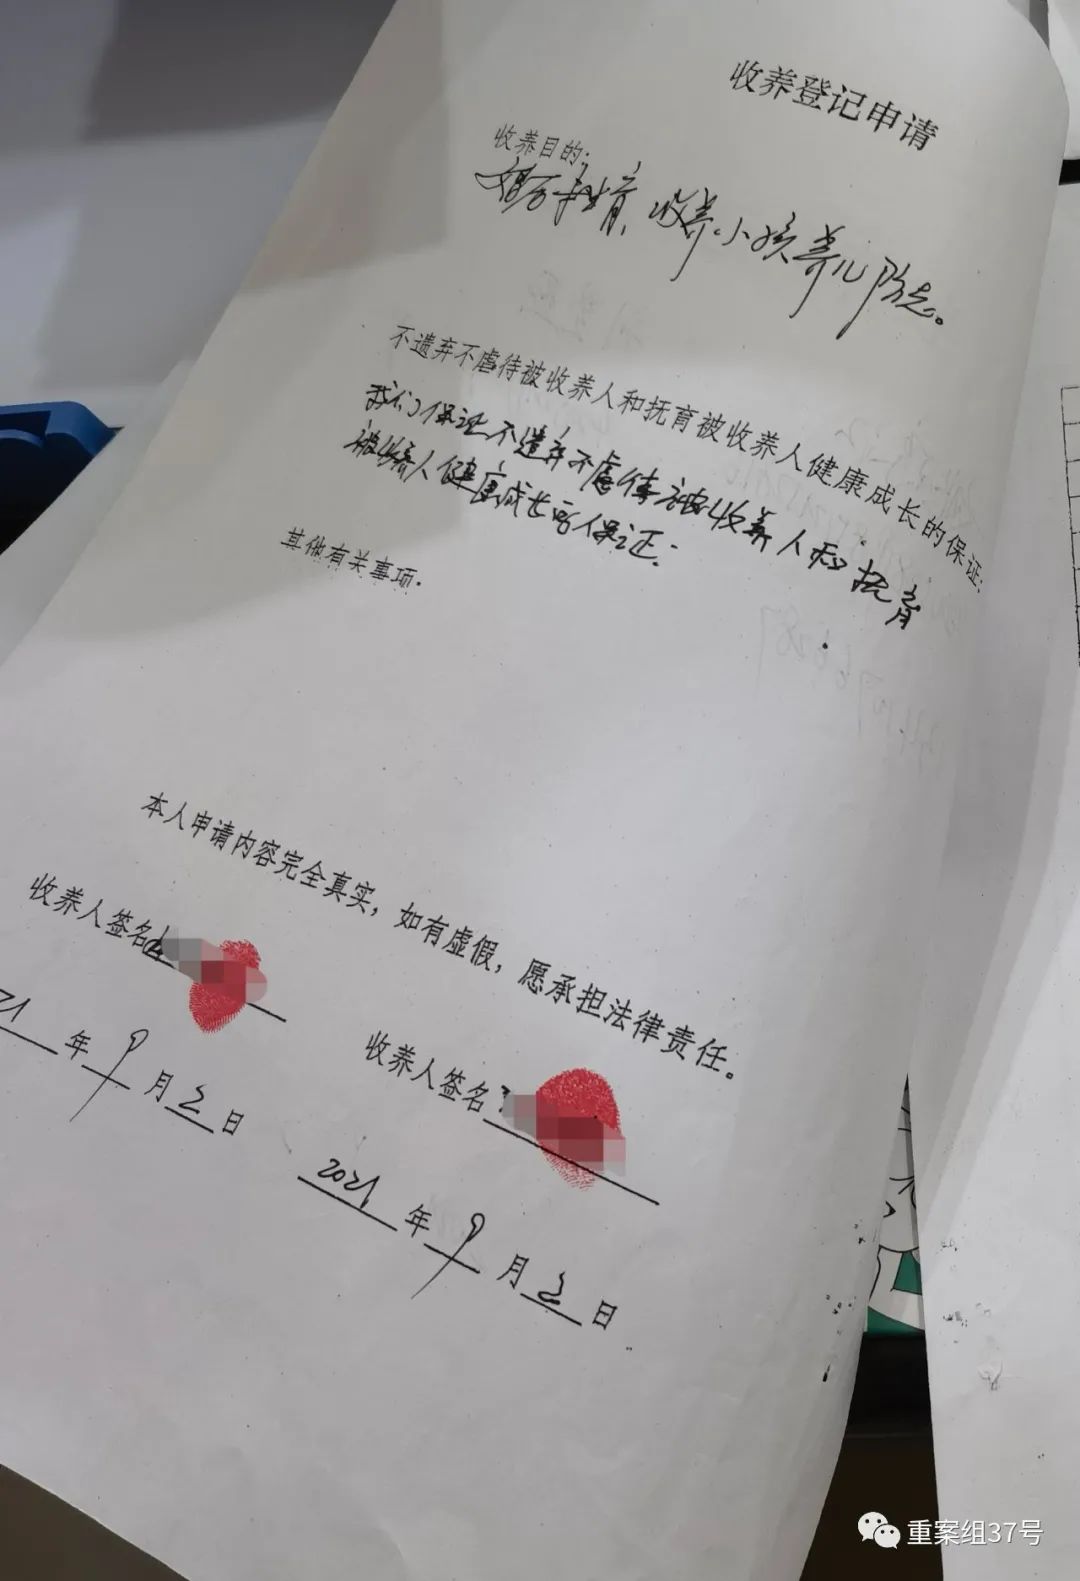 收养登记申请
收养目的:
婚后未生育，收养小孩养儿防老。
不遗弃不虐待被收养人和抚育被收养人健康成长的保证:
我们保证不遗弃不虐待被收养人和抚育
被收养人健康成长的保证.
其他有关事项.
本人申请内容完全真实，如有虚假，愿承担法律责任。
收养人签名
21年9月2日
收养人签名
2021年9月2日
重案组37号